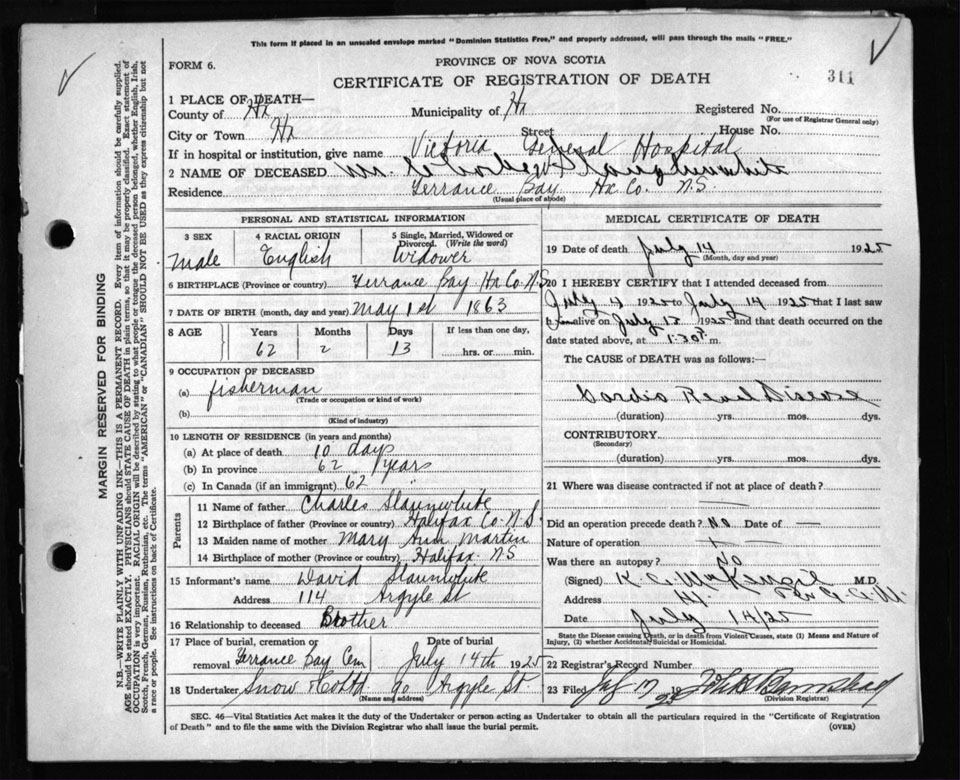 This form if placed in an unsealed envelope marked "Dominion Statistics Free," and properly addressed, will pass through the mails "FREE."
FORM 6.
PROVINCE OF NOVA SCOTIA
CERTIFICATE OF REGISTRATION OF DEATH
311
1 PLACE OF DEATH—
County of Hx Municipality of Hx Registered No.
(For use of Registrar General only)
City or Town Hx Street House No.
If in hospital or institution, give name Victoria General Hospital
2 NAME OF DECEASED Mr.
Residence Terrance Bay Hx Co. N.S.
(Usual place of abode)
PERSONAL AND STATISTICAL INFORMATION
3 SEX Male
4 RACIAL ORIGIN English
5 Single, Married, Widowed or Divorced. (Write the word) Widower
6 BIRTHPLACE (Province or country) Terrance Bay Hx Co. N.S.
7 DATE OF BIRTH (month, day and year) May 1st 1863
8 AGE Years Months Days If less than one day,
62 2 13 hrs. or min.
9 OCCUPATION OF DECEASED
(a) fisherman
(Trade or occupation or kind of work)
(b)
(Kind of industry)
10 LENGTH OF RESIDENCE (in years and months)
(a) At place of death 10 days
(b) In province 62 years
(c) In Canada (if an immigrant) 62 "
Parents
11 Name of father Charles Slaunwhite
12 Birthplace of father (Province or country) Halifax Co. N.S.
13 Maiden name of mother Mary Ann Martin
14 Birthplace of mother (Province or country) Halifax. N.S
15 Informant's name David Slaunwhite
Address 114 Argyle St
16 Relationship to deceased Brother
17 Place of burial, cremation or removal Terrance Bay Cem
Date of burial July 14th 1925
18 Undertaker Snow & Co Ltd 90 Argyle St.
(Name and address)
MEDICAL CERTIFICATE OF DEATH
19 Date of death July 14 1925
(Month, day and year)
20 I HEREBY CERTIFY that I attended deceased from
July 4 1925 to July 14 1925 that I last saw
h alive on July 13 1925 and that death occurred on
date stated above, at 1:30 m.
The CAUSE OF DEATH was as follows:—
Cardio Renal Disease
(duration) yrs. mos. dys.
CONTRIBUTORY
(Secondary)
(duration) yrs. mos. dys.
21 Where was disease contracted if not at place of death?
—
Did an operation precede death? No Date of —
Nature of operation
Was there an autopsy? No
(Signed) K. C. MacKenzie M.D.
Address Hx.
Date July 14/25
State the Disease causing Death, or in death from Violent Causes, state (1) Means and Nature of Injury, (2) whether Accidental, Suicidal or Homicidal.
22 Registrar's Record Number
23 Filed July 17 1925
(Division Registrar)
SEC. 46—Vital Statistics Act makes it the duty of the Undertaker or person acting as Undertaker to obtain all the particulars required in the "Certificate of Registration
of Death" and to file the same with the Division Registrar who shall issue the burial permit.
(OVER)
MARGIN RESERVED FOR BINDING
N.B.—WRITE PLAINLY WITH UNFADING INK—THIS IS A PERMANENT RECORD. Every item of information should be carefully supplied.
AGE should be stated EXACTLY. PHYSICIANS should STATE CAUSE OF DEATH in plain terms, so that it may be properly classified. Exact statement of
OCCUPATION is very important. RACIAL ORIGIN will be described by stating to what people or tongue the deceased person belonged, whether English, Irish,
Scotch, French, German, Russian, Ruthenian, etc. The terms "AMERICAN" or "CANADIAN" SHOULD NOT BE USED as they express citizenship but not
a race or people. See instructions on back of Certificate.